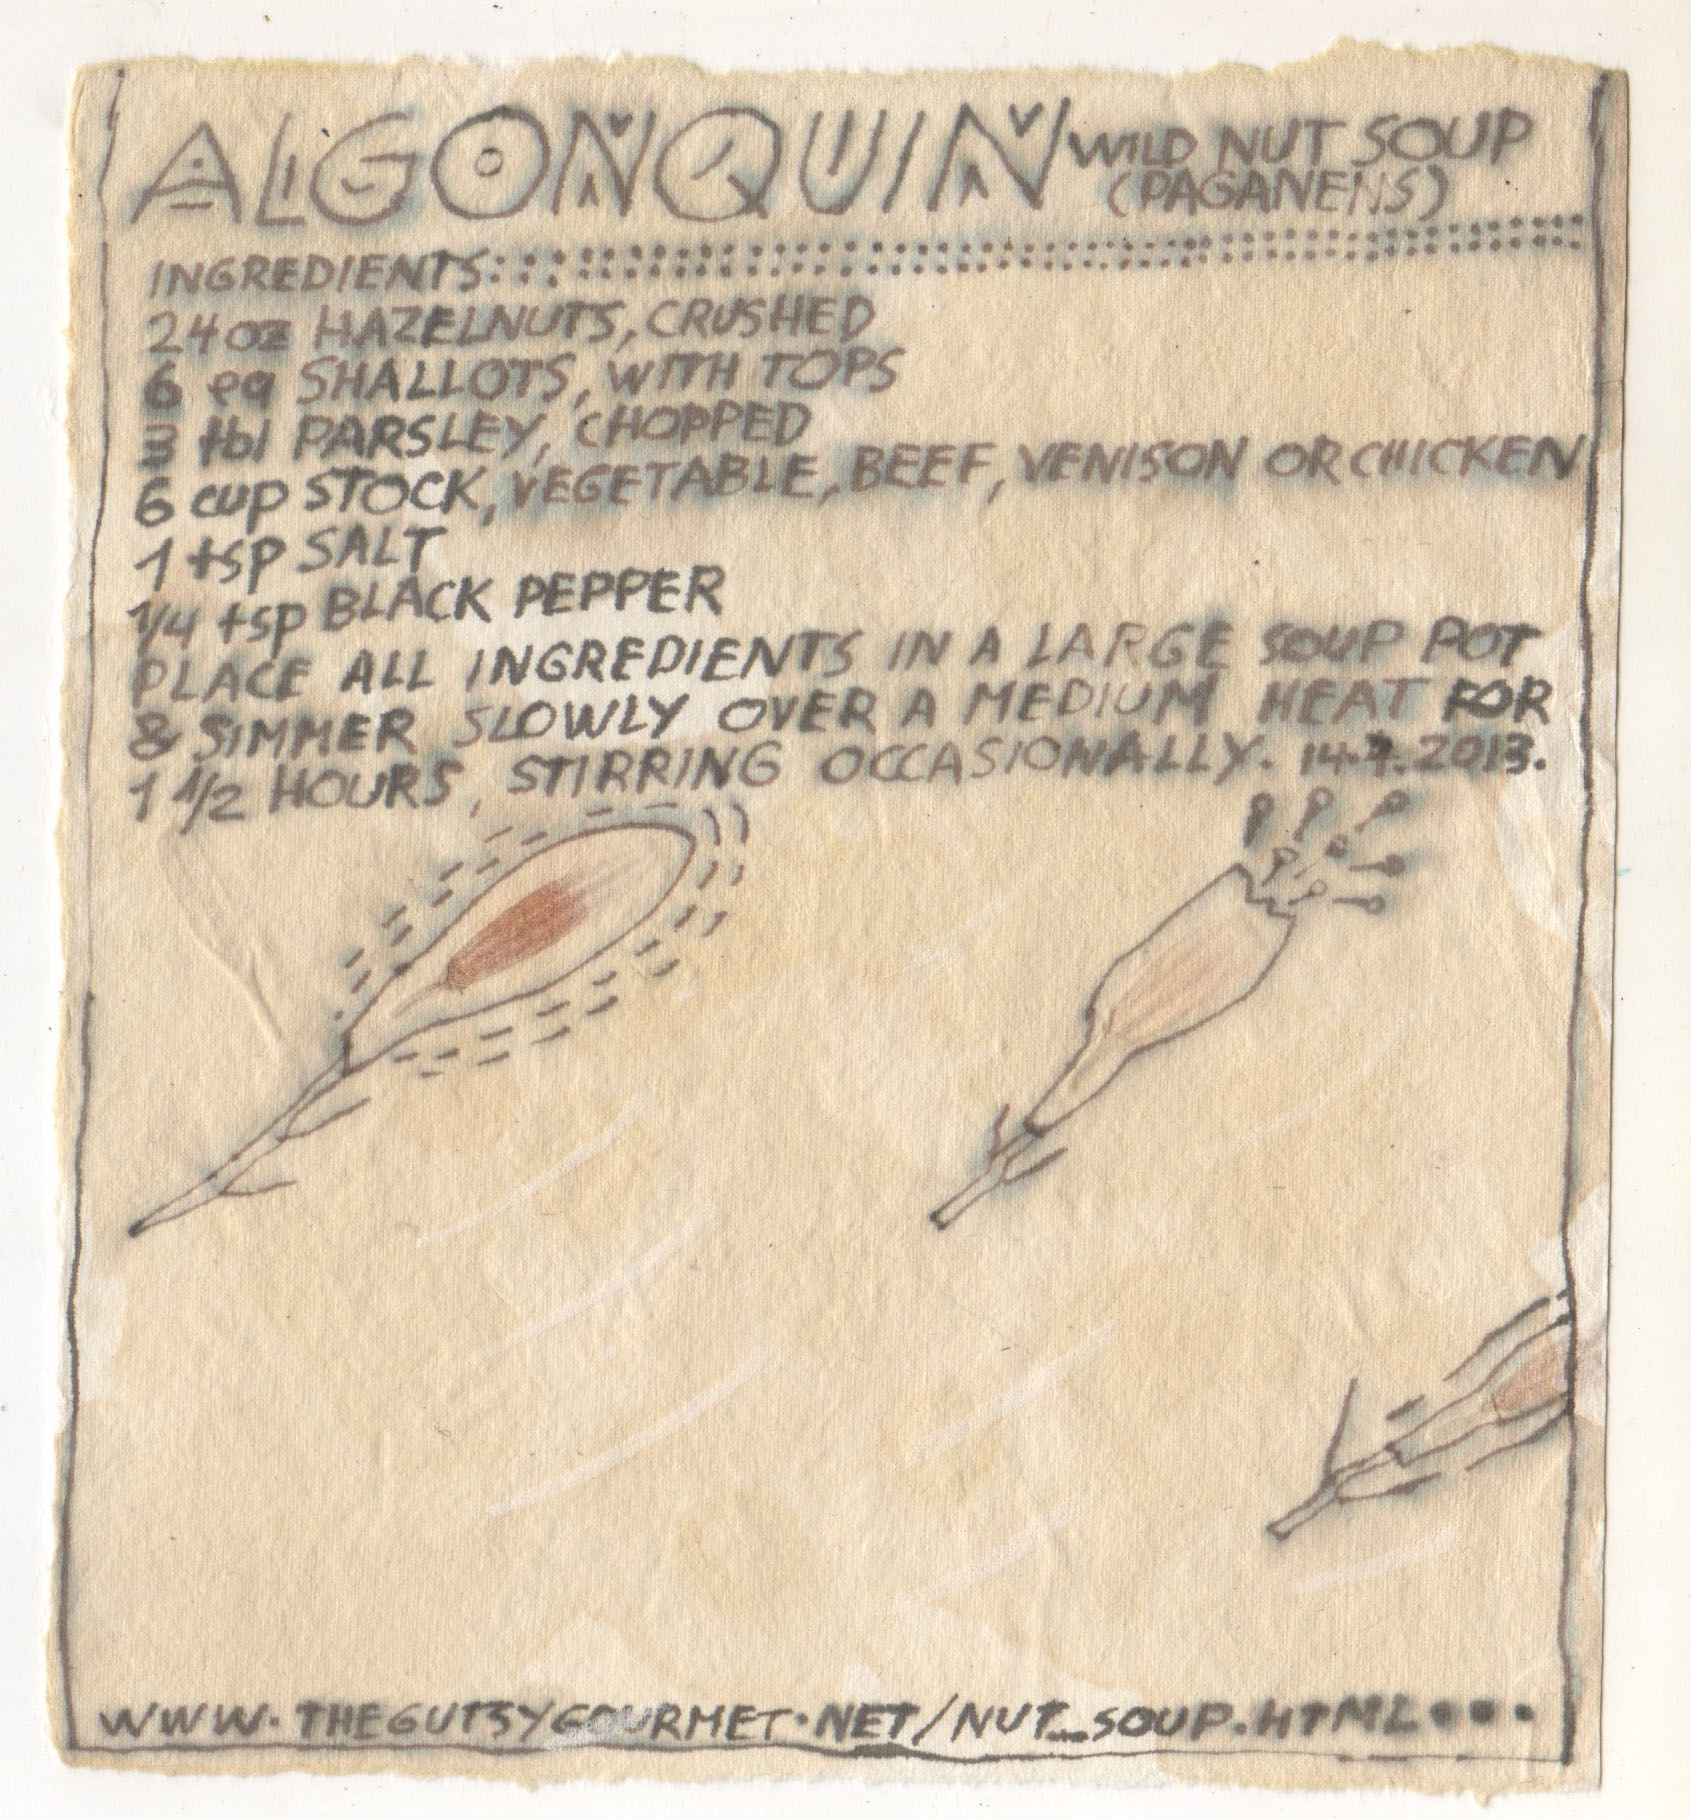 ALGONQUIN WILD NUT SOUP
(PAGANENS)
INGREDIENTS:
24 oz HAZELNUTS, CRUSHED
6 ea SHALLOTS, WITH TOPS
3 tbl PARSLEY, CHOPPED
6 cup STOCK, VEGETABLE, BEEF, VENISON OR CHICKEN
1 tsp SALT
1/4 tsp BLACK PEPPER
PLACE ALL INGREDIENTS IN A LARGE SOUP POT
& SIMMER SLOWLY OVER A MEDIUM HEAT FOR
1 1/2 HOURS, STIRRING OCCASIONALLY. 14.7.2013.
WWW.THEGUTSYGOURMET.NET/NUT_SOUP.HTML...